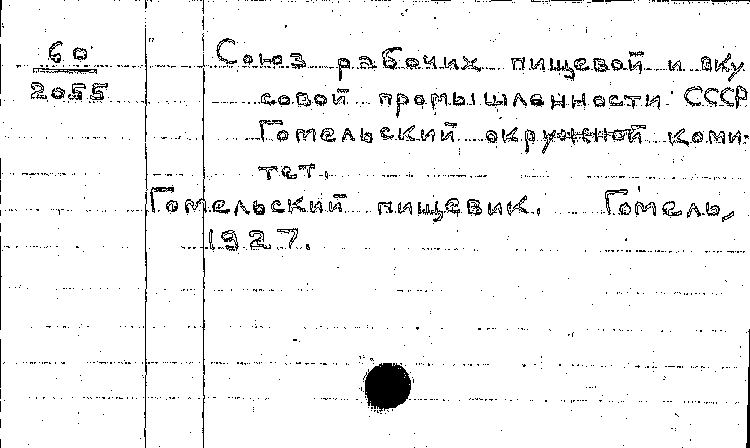 60
2055
Союз рабочих пищевой и вку
совой промышленности СССР
Гомельский окружной коми-
тет.
Гомельский пищевик. Гомель,
1927.